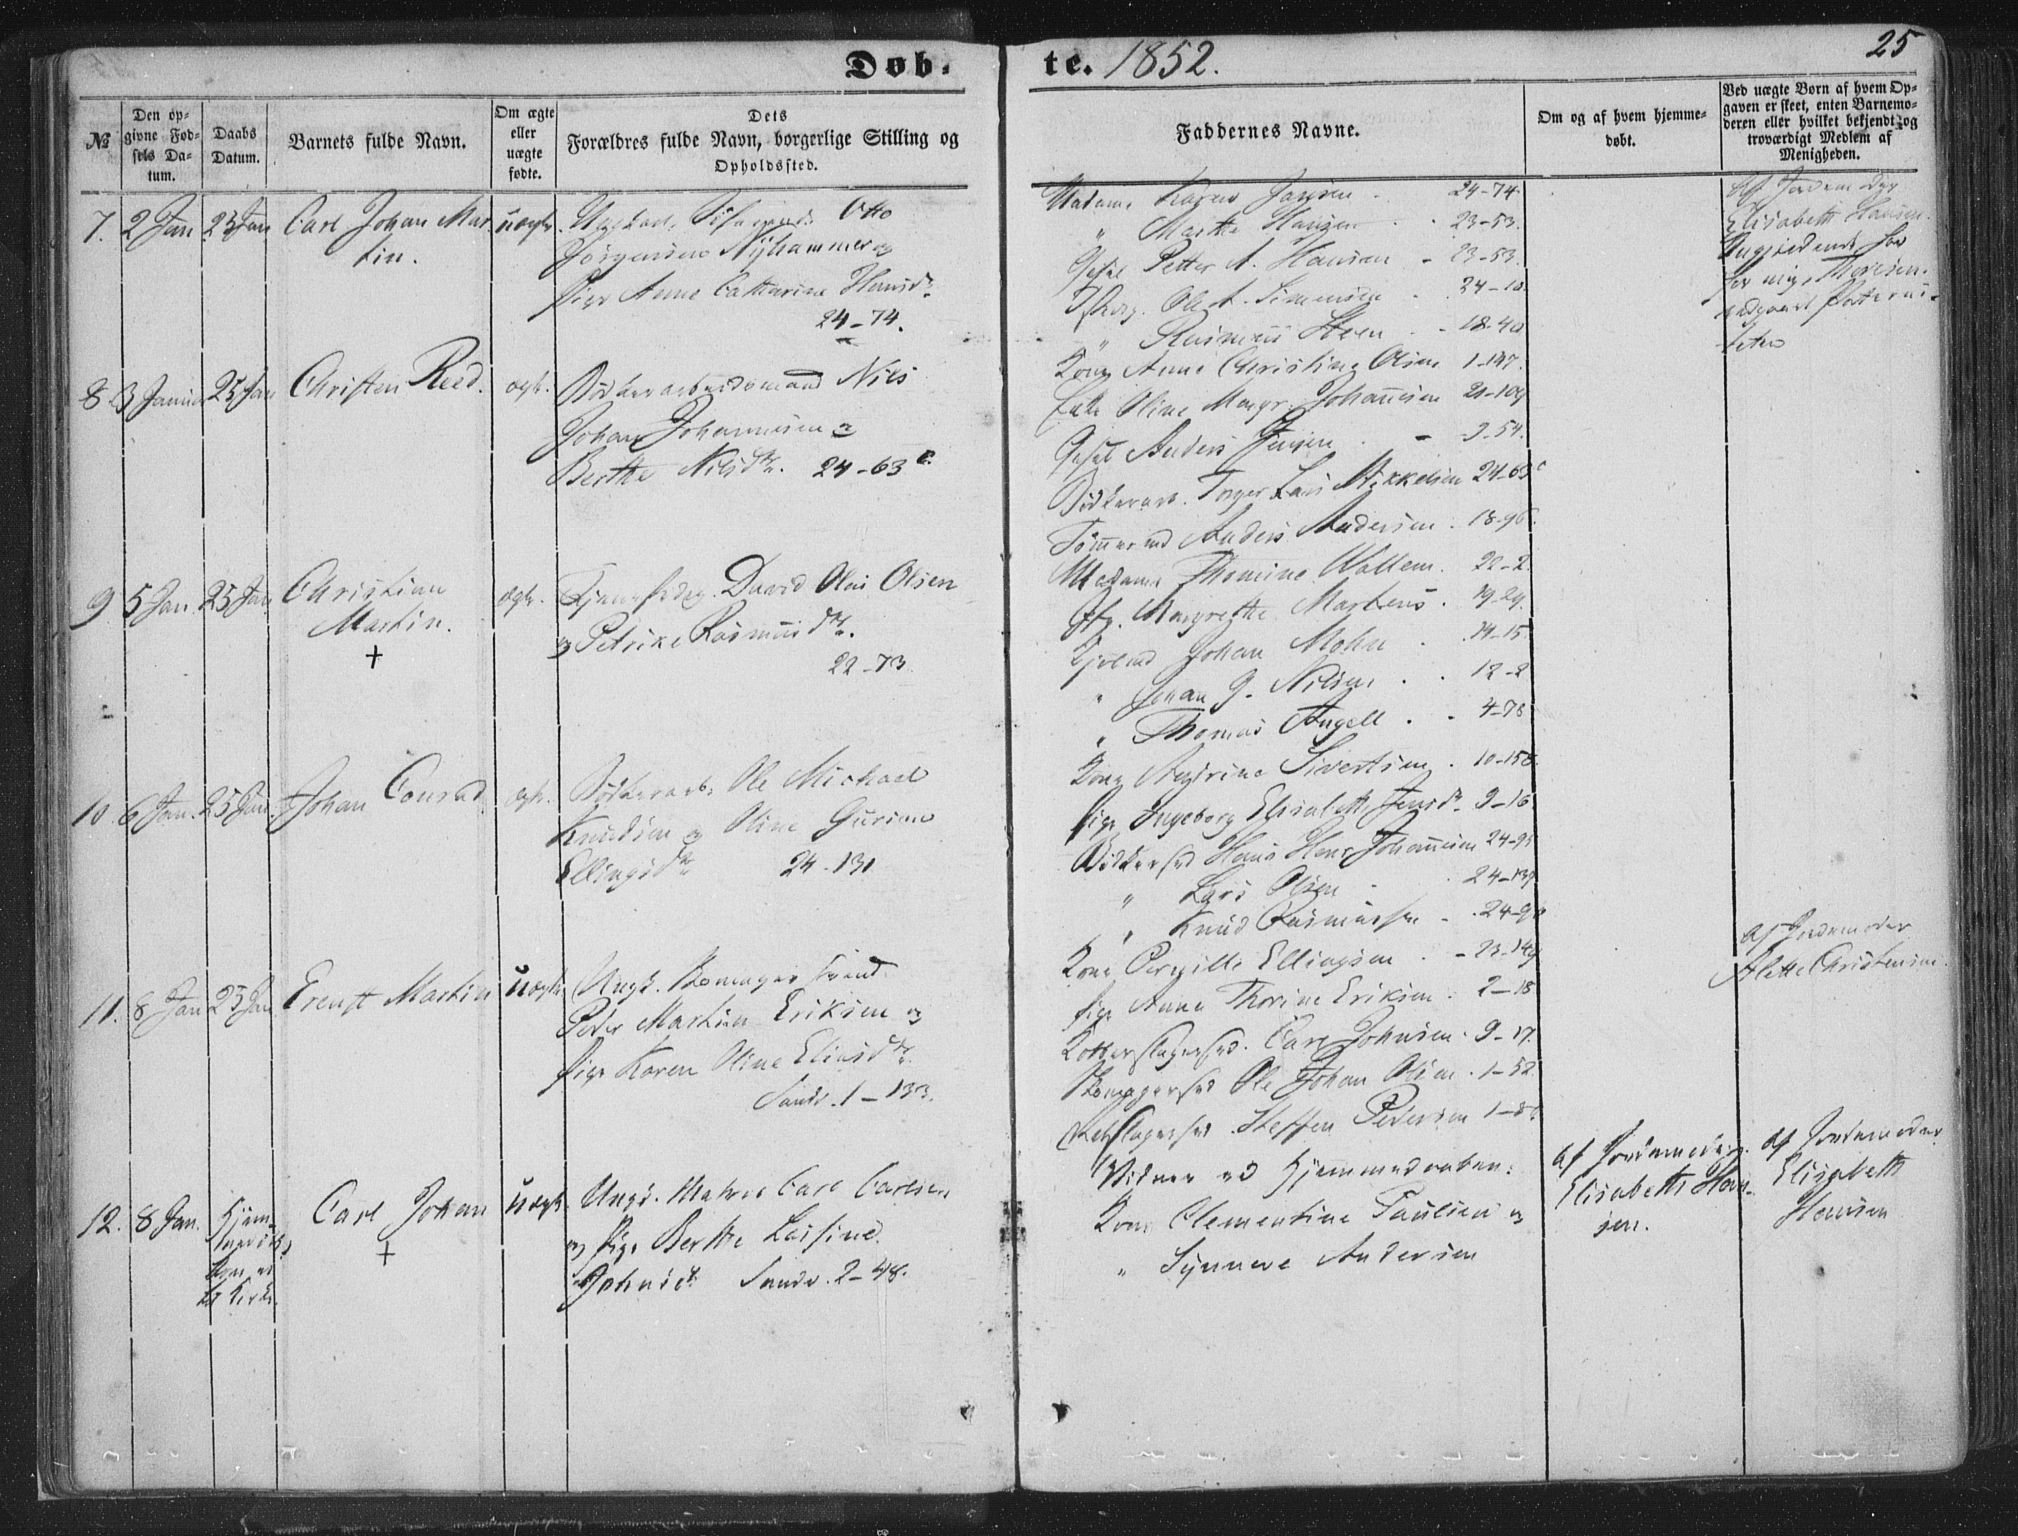 Døb-te. 1852.
25
№
Den op-
givne Fød-
sels Da-
tum.
Daabs
Datum.
Barnets fulde Navn.
Om ægte
eller
uægte
fødte.
Dets
Forældres fulde Navn, borgerlige Stilling og
Opholdssted.
Faddernes Navne.
Om og af hvem hjemme-
døbt.
Ved uægte Børn af hvem Op-
gaven er skeet, enten Barnemo-
deren eller hvilket bekjendt og
troværdigt Medlem af
Menigheden.
7. 2 Jan 25 Jan Carl Johan Mar
tin.
uægte
Otto
Jørgensen Nyhammer og
Pige Anne Catharine Hansdr
24-74.
Madame Karen Jansen 24-74.
" Marthe Hansen 23-53.
Petter A. Hansen - 23-53.
Ole A. Simensen 24-10
" Rasmus Steen - 18-40
Elisabeth Hansen
8 3 Januar 25 Jan Christen Reed. ægte.
Bødkerarbeidsmand Nils
Johan Johannesen og
Berthe Nilsdr. 24-63 c.
Kone Anne Christine Olsen 1-147.
Enke Oline Margr. Johannesen 21-109
Anders Jensen - 9-54.
Bødkerarb. Lars Mikkelsen 24-63c
Tømmermd Anders Andersen. 18-96.
9 5 Jan. 25 Jan Christian
Martin.
+
ægte.
David Olai Olsen
og Petrike Rasmusdr.
22-73
Madame Thomine Wallem. 22-2
Jfr. Margrethe Martens. 19-29.
Johan Mohn 14-15
" Johan G. Nilsen 12-2
" Thomas Angell 4-78
10 6 Jan. 25 Jan. Johan Conrad ægte.
Bødkerarb. Ole Michael
Knudsen og Oline Gurine
Ellingsdr 24-131
Kone Sivertsen. 10-158.
Pige Ingeborg Elisabeth Jensdr 9-16
Bødkersvd Hans Hans Johannesen 24-95
" Lars Olsen 24-139
" Knud Rasmussen - 24-90
11. 8 Jan 25 Jan Ernst Martin uægte
Ungk. Skomager svend
Peder Martin Eriksen og
Pige Karen Oline Eliasdr.
Sandv. 1-133.
Kone Pernille Ellingsen - 23-149
Pige Anna Thorine Eriksen. 2-18
Kobberslagersvd. Carl Johnsen. 9-17.
Skomagersvd Ole Johan Olsen. 1-52.
Steffen Pedersen 1-8
Af Jordemoder
Alette Christensen.
12. 8 Jan. Hjem-
medøbt,
Carl Johan
+
uægte
Ungk. Matros Carl Carlsen
og Pige Berthe Lasine
Johnsdr Sandv. 2-48.
Vidner ved Hjemmedaaben:
Kone Clementine Paulsen og
" Synneve Andersen
Af Jordemoder
Elisabeth Han-
sen.
Af Jordemoder
Elisabeth
Hansen